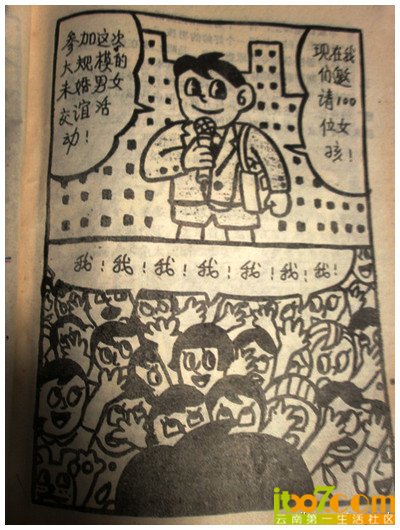 现在我
们邀
请100
位女
孩!
参加这次
大规模的
未婚男女
交谊活
动!
我!我!我!我!我!我!我!
itbo7com
云南第一生活社区